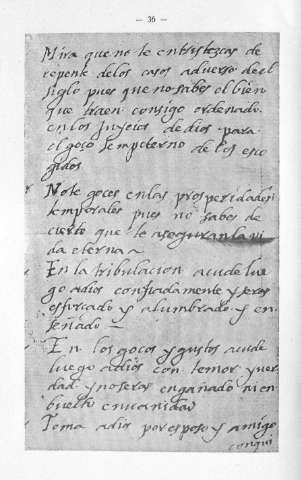 — 36 —
Mira que no te entristezcas de
repente delos casos adversos del
siglo pues que no sabes el bien
que traen consigo ordenado
en los Juycios de dios para
el goço sempiterno de los esco
gidos
No te goces en las prosperidades
temporales pues no sabes de
cierto que te aseguran la vi
da eterna
En la tribulacion acude lue
go adios confiadamente y seras
esforçado y alumbrado y en
señado
En los goços y gustos acude
luego adios con temor y ver
dad y no seras engañado ni en
buelto en vanidad
Toma adios por esposo y amigo